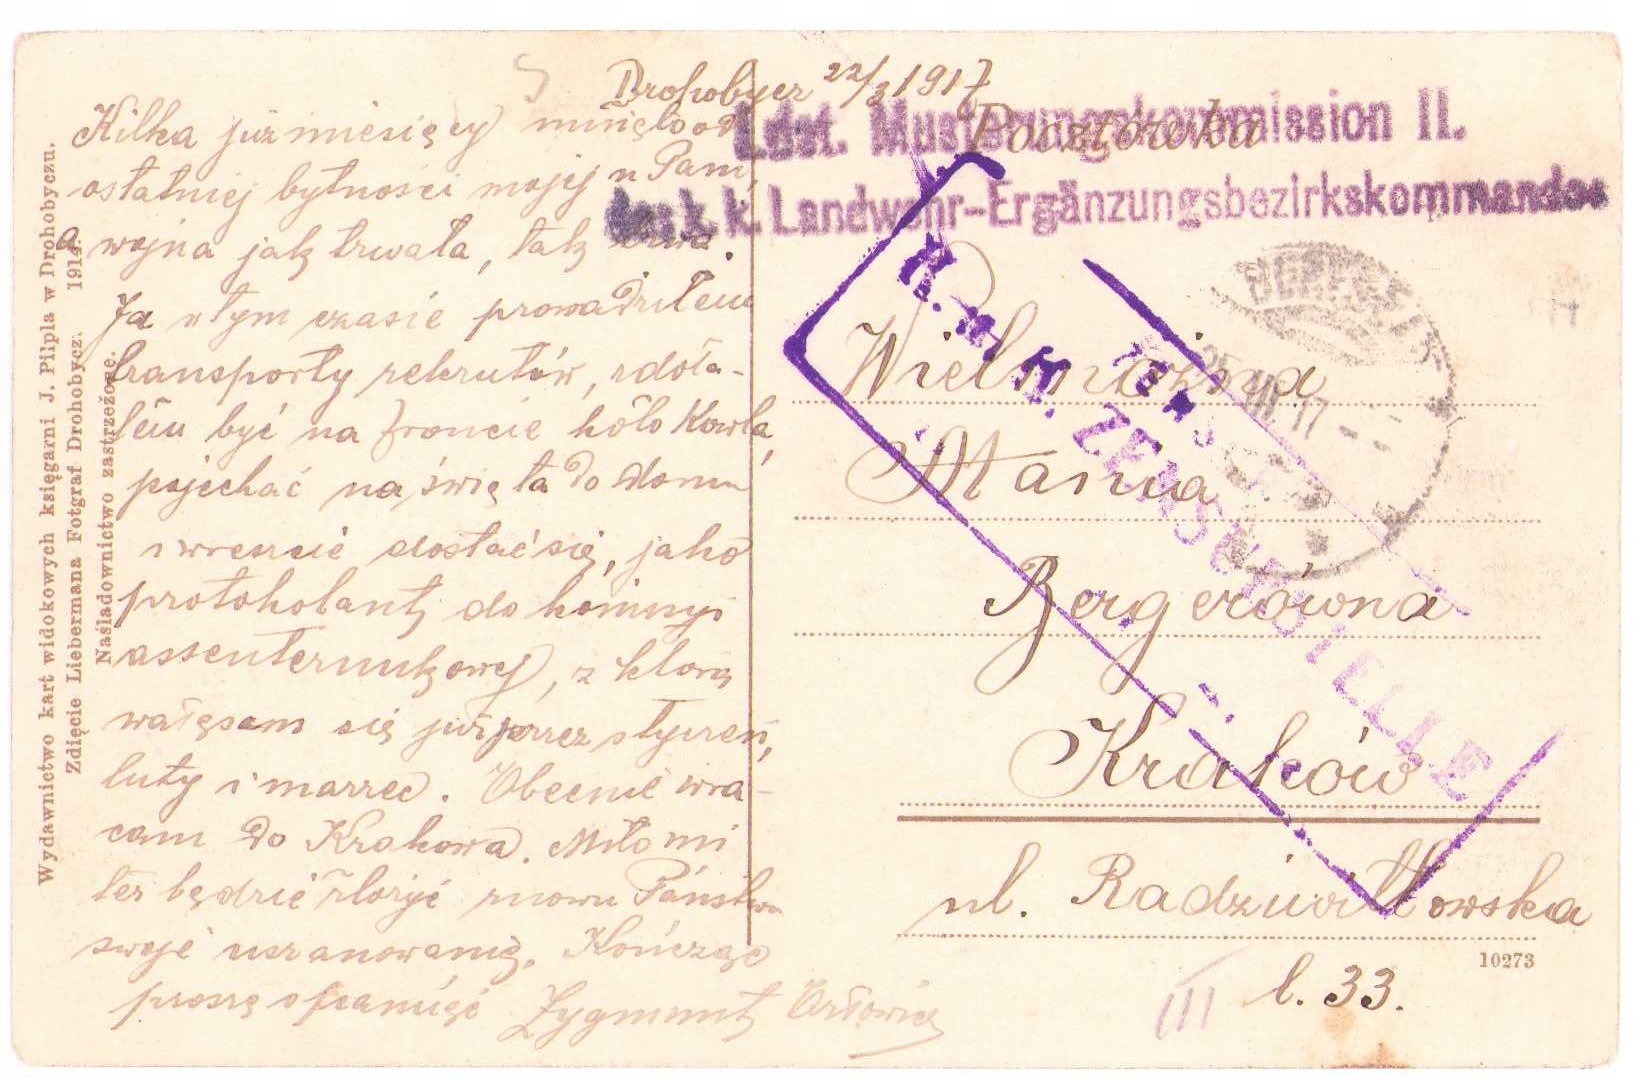 Drohobycz 22/3 1917
Kilka już miesięcy minęło od
ostatniej bytności mojej u Pani,
a wojna jak trwała, tak trwa.
Ja w tym czasie prowadziłem
transporty rekrutów, zdoła-
łem być na froncie koło Kowla,
pojechać na święta do domu
i wreszcie dostać się, jako
protokolant do komisyi
assenterunkowej, z którą
wałęsam się już przez styczeń,
luty i marzec. Obecnie wra-
cam do Krakowa. Miło mi
też będzie złożyć znowu Państwu
swoje uszanowanie. Kończąc
proszę o pamięć Zygmunt
Wydawnictwo kart widokowych księgarni J. Pilpla w Drohobyczu.
Zdjęcie Liebermana Fotgraf Drohobycz. 1914.
Naśladownictwo zastrzeżone.
Pocztówka
Ldst. Musterungskommission II.
des k. k. Landwehr-Ergänzungsbezirkskommandos
25 III 17
ZENSURSTELLE
Wielmożna
Mania
Bergerówna
Kraków
ul. Radziwiłłowska
l. 33.
10273
III